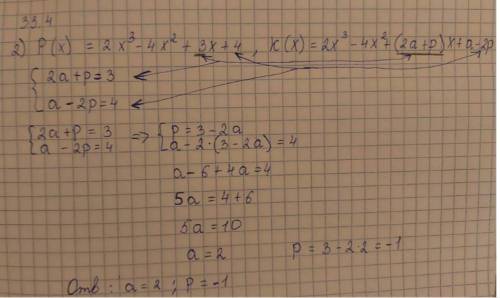 33.4
2) P(x) = 2x³-4x²+3x+4, K(x)=2x³-4x²+(2a+p)x+a-2p
{2a+p=3
a-2p=4
{2a+p=3
a-2p=4 => {p=3-2a
a-2·(3-2a)=4
a-6+4a=4
5a=4+6
5a=10
a=2 p=3-2·2=-1
Отв: a=2; p=-1